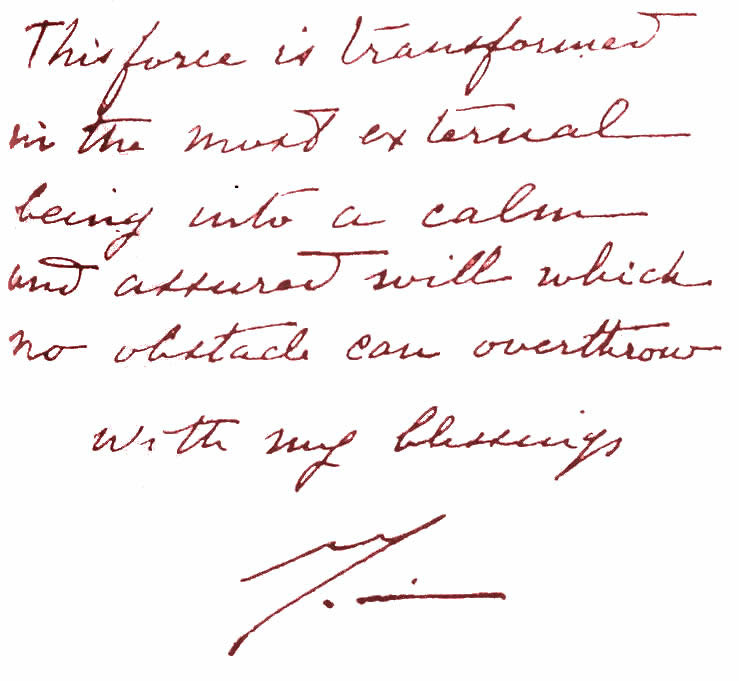 This force is transformed
in the most external
being into a calm
and assured will which
no obstacle can overthrow
with my blessings